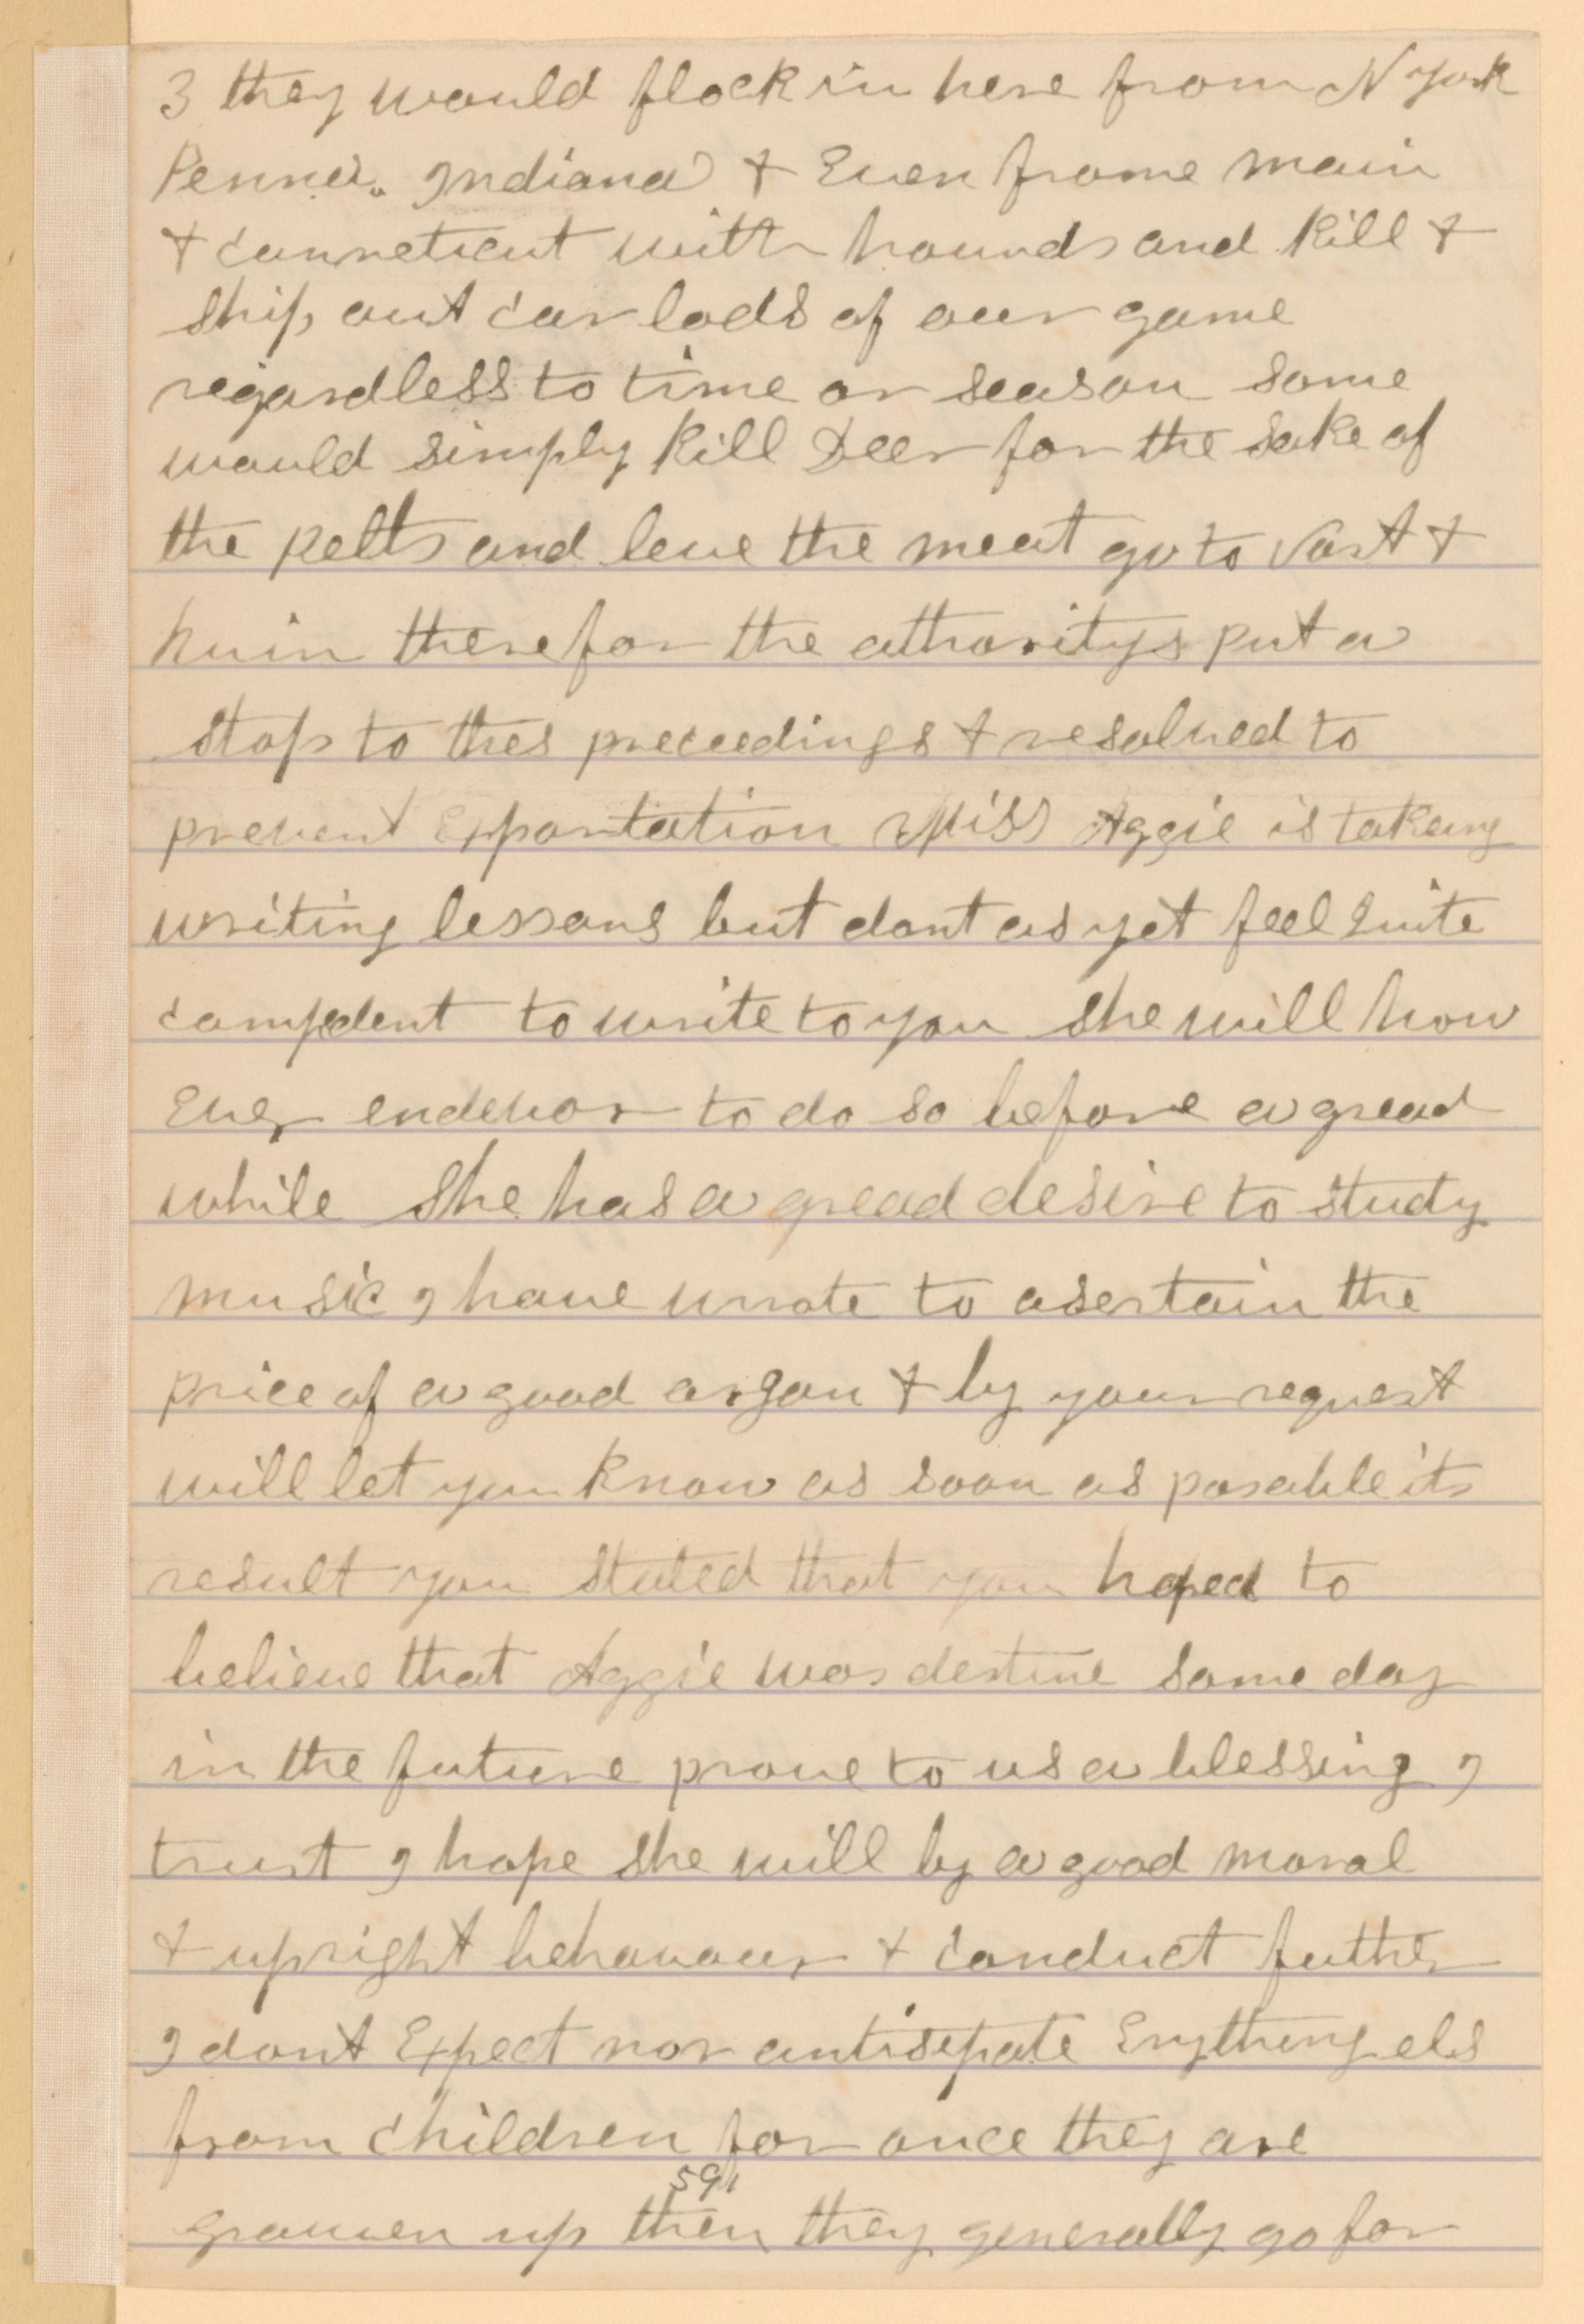 3 they would flock in here from N York
Penna. Indiana & Even frome main
& conneticut with hounds and kill &
ship out car lods of our game
regardless to time or season some
would simply kill Deer for the sake of
the pelts and leve the meat go to vast &
huin therefor the athoritys put a
stop to thes preceedings & resolved to
prevent Exportation Miss Aggie is takeing
writing lessons but dont as yet feel quite
compedent to write to you she will how
Ever endevor to do so before a gread
while she has a gread desire to study
music I have wrote to asertain the
price of a good organ & by your request
will let you know as soon as posable its
result you stated that you hoped to
believe that Aggie was destine some day
in the future prove to us a blessing I
trust I hope she will by a good moral
& upright behavour & conduct futher
I dont Expect nor antisepate Enything els
from children for once they are
591
growen up then they generally go for